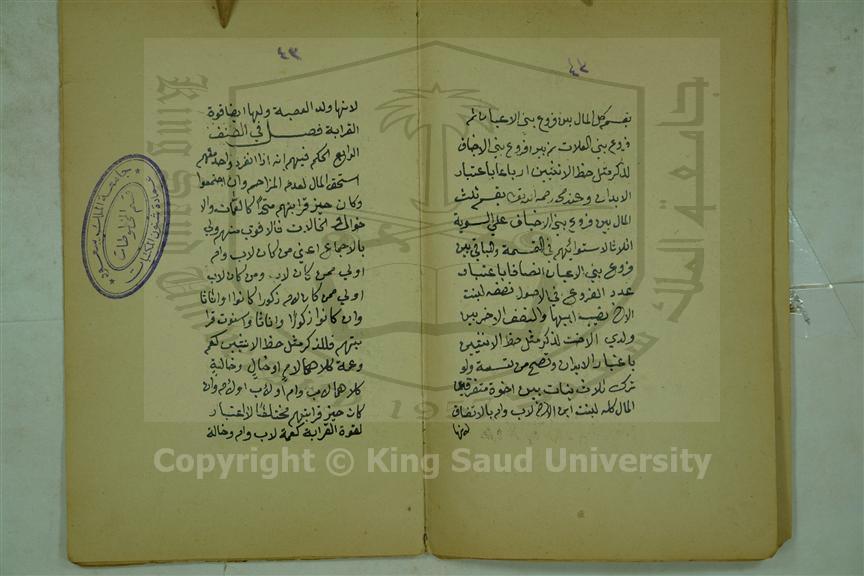 ٤٢
يقسم كل المال بين فروع بني الاعيان ثم
فروع بني العلات ثم بين فروع بني الاخياف
للذكر مثل حظ الانثيين ارباعا باعتبار
الابدان وعند محمد رحمه الله يقسم ثلث
المال بين فروع بني الاخياف علي السوية
اثلاثا لاستوائهم في القسمة والباقي بين
فروع بني الاعيان انصافا باعتبار
عدد الفروع في الاصول نصفه لبنت
الاخ نصيب ابيها والنصف الاخر بين
ولدي الاخت للذكر مثل حظ الانثيين
باعتبار الابدان وتصح من تسعة ولو
ترك ثلاث بنات بنين اخوة متفرقين
المال كله لبنت ابن الاخ لاب وام بالاتفاق
لانها
٤٣
لانها ولد العصبة ولها ايضا قوة
القرابة فصل في الصنف
الرابع الحكم فيهم انه اذا انفرد واحد منهم
استحق المال لعدم المزاحم وان اجتمعوا
وكان حيز قرابتهم متحدا كالعمات والا
خوال والخالات فالاقوي منهم اولي
بالاجماع اعني من كان لاب وام
اولي ممن كان لاب ومن كان لاب
اولي ممن كان لام ذكورا كانوا او اناثا
وان كانوا ذكورا واناثا واستوت قرا
بتهم فللذكر مثل حظ الانثيين كعم
وعمة كلاهما لام او خال وخالة
كلاهما لاب وام او لاب او لام وان
كان حيز قرابتهم مختلفا فلا اعتبار
لقوة القرابة كعمة لاب وام وخالة
جامعة الملك سعود
عمادة شئون المكتبات
قسم المخطوطات
King Saud University
جامعة الملك سعود
1957
Copyright © King Saud University